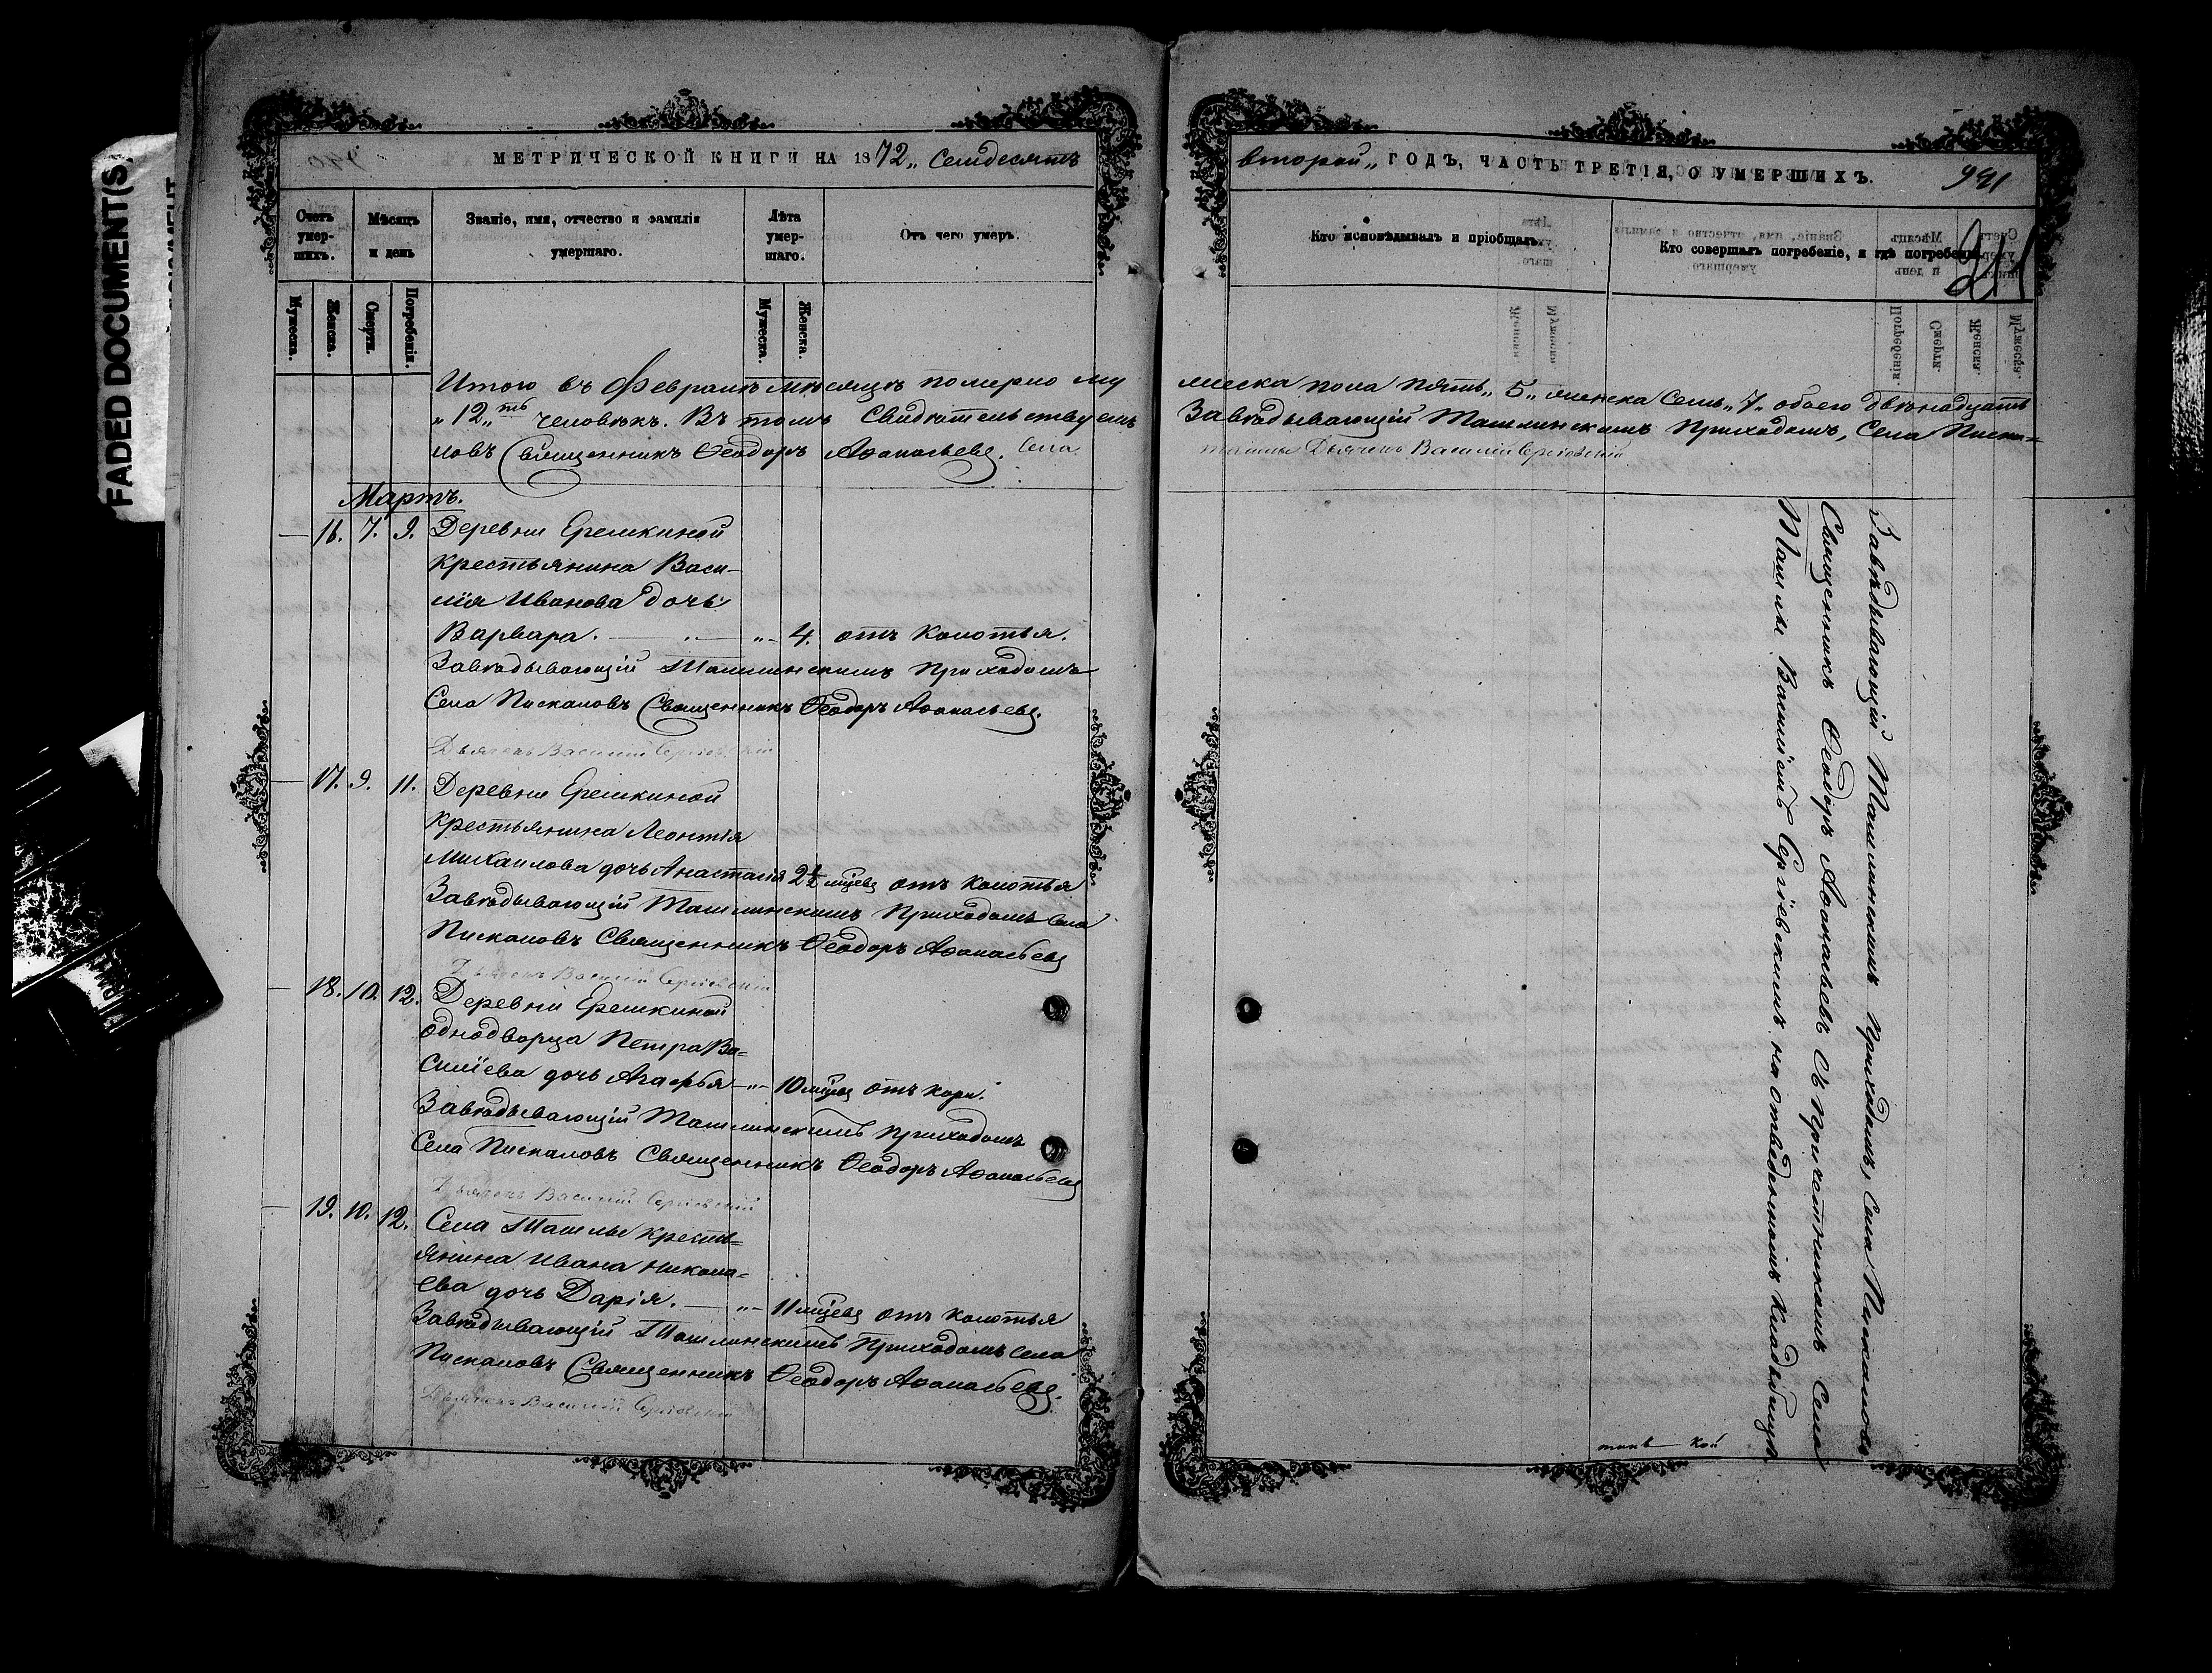 FADED DOCUMENT(S)
МЕТРИЧЕСКОЙ КНИГИ НА 1872„ Семдесятъ
Счетъ умер-шихъ.
Мѣсяцъ и день
Званіе, имя, отчество и фамилія умершаго.
Лѣта умер-шаго.
Отъ чего умеръ.
Мужеска.
Женска.
Смерти.
Погребенія.
Мужеска.
Женска.
Итого въ Февралѣ мѣсяцѣ померло му
„12„ть человѣкъ. Въ томъ Свидѣтельствуемъ
ловъ Священникъ Ѳеодоръ Аѳанасьевъ. Села
Мартъ.
— 16. 7. 9. Деревни Ерешкиной
крестьянина Васи-
лія Иванова дочь
Варвара. — „ — 4. отъ колотья.
Завѣдывающій Ташлинскимъ Приходомъ
Села Пискаловъ Священникъ Ѳеодоръ Аѳанасьевъ.
Дьячекъ Василій Сергіевскій
— 17. 9. 11. Деревни Ерешкиной
крестьянина Леонтія
Михаилова дочь Анастасія 2½ мцевъ отъ колотья
Завѣдывающій Ташлинскимъ Приходомъ Села
Пискаловъ Священникъ Ѳеодоръ Аѳанасьевъ
Дьячекъ Василій Сергіевскій
— 18. 10. 12. Деревни Ерешкиной
однодворца Петра Ва=
силіева дочь Агафья — „ — 10 мцевъ отъ кори.
Завѣдывающій Ташлинскимъ Приходомъ
Села Пискаловъ Священникъ Ѳеодоръ Аѳанасьевъ
Дьячекъ Василій Сергіевскій
— 19. 10. 12. Села Ташлы крестъ=
янина Ивана Никола=
ева дочь Дарія. — „ — 11 мцевъ отъ колотья
Завѣдывающій Ташлинскимъ Приходомъ Села
Пискаловъ Священникъ Ѳеодоръ Аѳанасьевъ.
Дьячекъ Василій Сергіевскій
второй„ ГОДЪ, ЧАСТЬ ТРЕТІЯ, О УМЕРШИХЪ.
941
Кто исповѣдывалъ и пріобщалъ.
Кто совершалъ погребеніе, и гдѣ погребены.
жеска пола пять„ 5„ женска семь„ 7„ обоего двѣнадцать
Завѣдывающій Ташлинскимъ Приходомъ, Села Писка=
Ташлы Дьячекъ Василій Сергіевскій
Завѣдывающій Ташлинскимъ приходомъ, Села Пискаловъ
Священникъ Ѳеодоръ Аѳанасьевъ съ причетникомъ Села
Ташлы Василіемъ Сергіевскимъ на отведенномъ кладбищѣ.